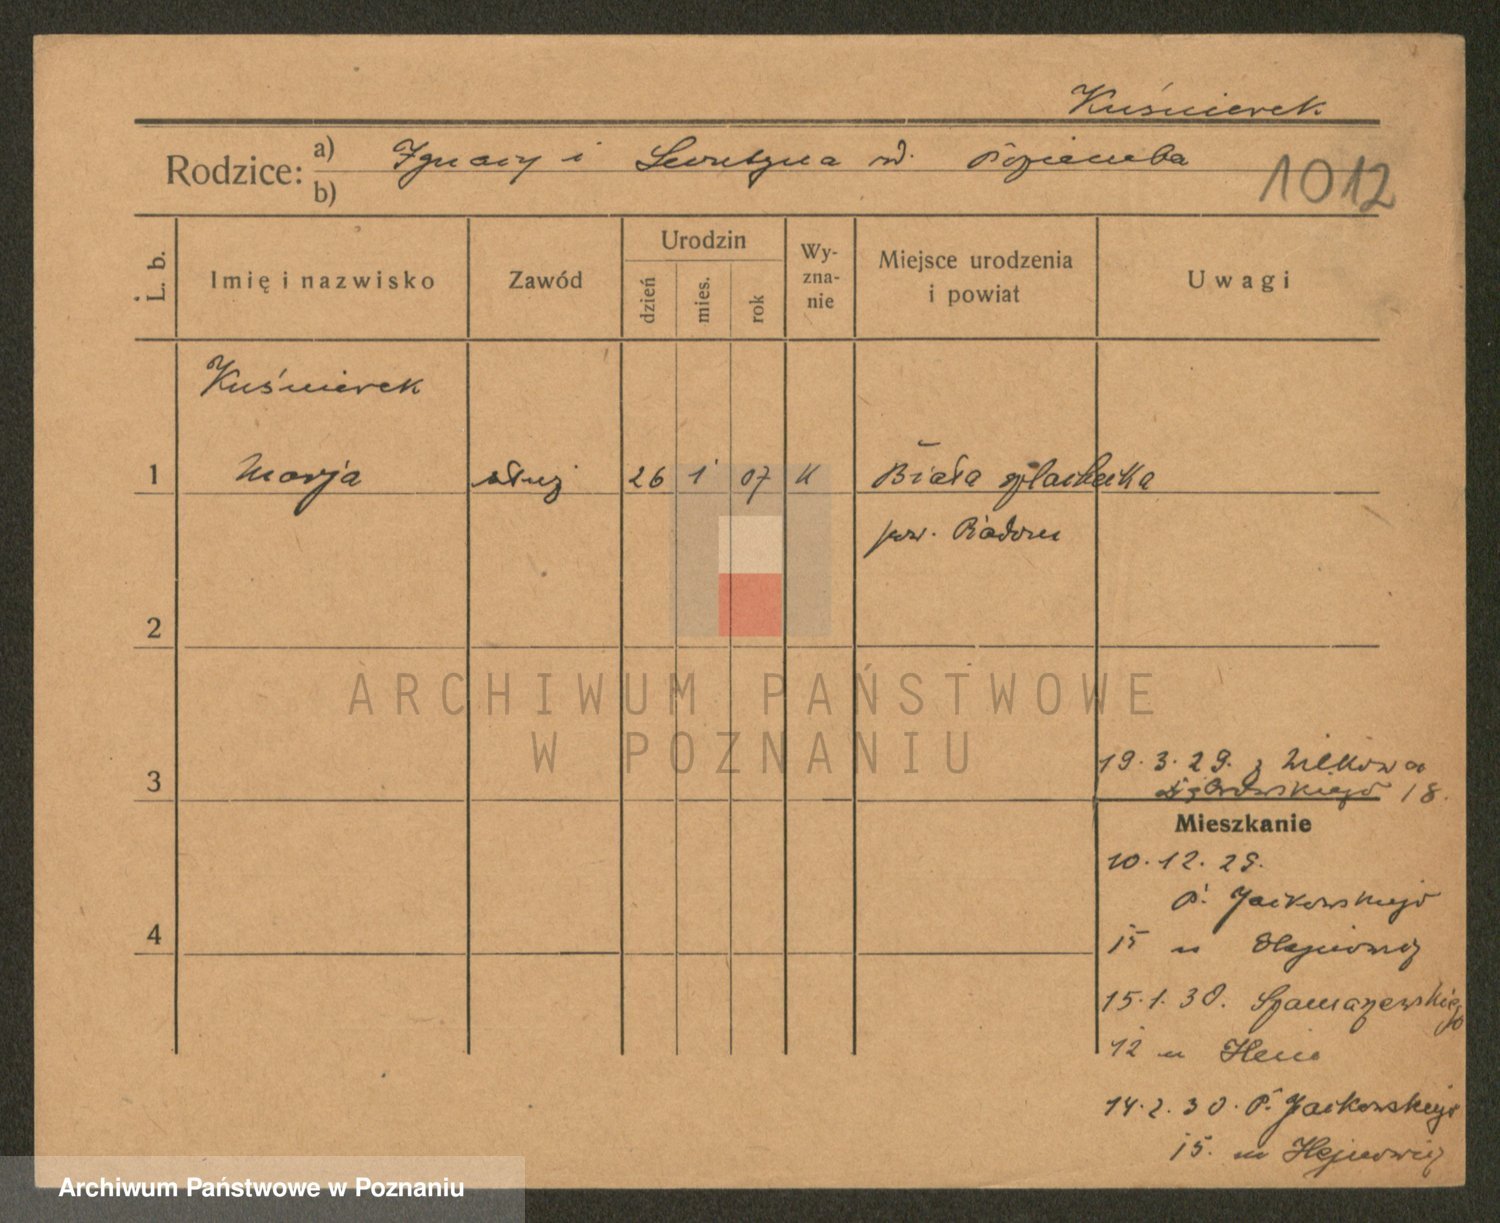 Kuśnierek
Rodzice: a) Ignacy i rd.
b)
1012
L. b.
Imię i nazwisko
Zawód
Urodzin
dzień
mies.
rok
Wy-
zna-
nie
Miejsce urodzenia
i powiat
Uwagi
Kuśnierek
1 Marja służ 26 1 07 K Biała szlachecka
pow. Radom
2
ARCHIWUM PAŃSTWOWE
W POZNANIU
19.3.29. z Wilkowa
3 Dąbrowskiego 18.
Mieszkanie
10.12.29.
P. Jackowskiego
4
15 u
15.1.30. Szamarzewskiego
12 u
14.2.30. P. Jackowskiego
15. u
Archiwum Państwowe w Poznaniu